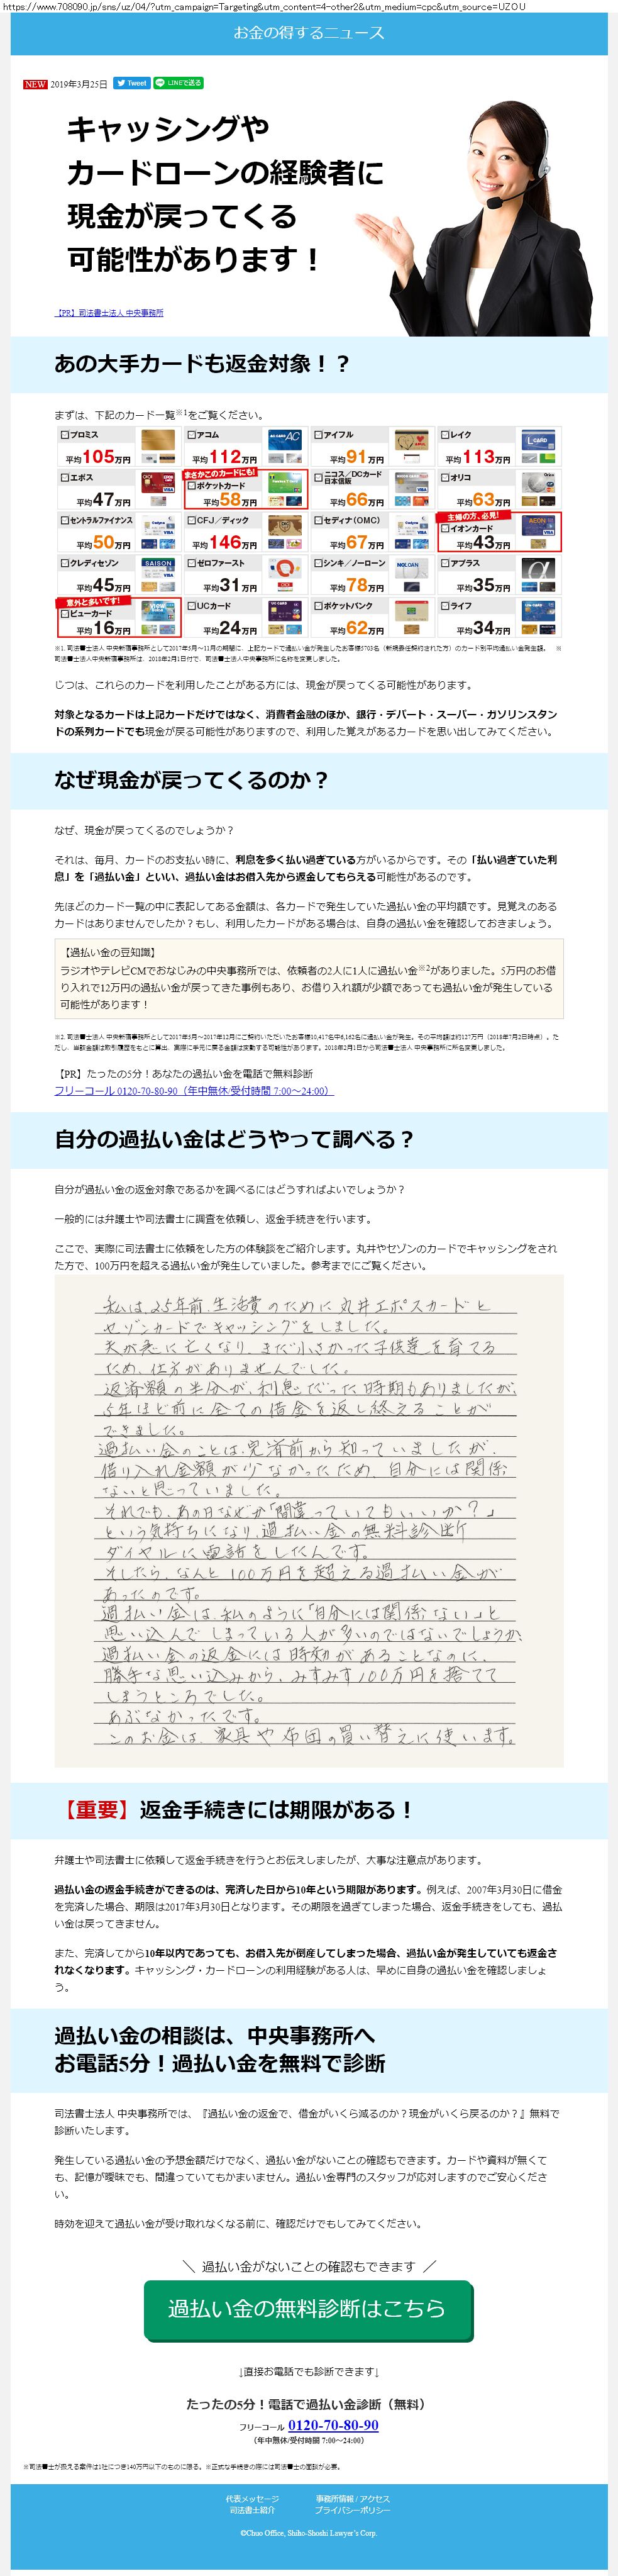 https://www.708090.jp/sns/uz/04/?utm_campaign=Targeting&utm_content=4-other2&utm_medium=cpc&utm_source=UZOU
お金の得するニュース
NEW 2019年3月25日 Tweet LINEで送る
キャッシングや
カードローンの経験者に
現金が戻ってくる
可能性があります！
【PR】司法書士法人 中央事務所
あの大手カードも返金対象！？
まずは、下記のカード一覧※1をご覧ください。
プロミス 平均105万円
アコム 平均112万円
アイフル 平均91万円
レイク 平均113万円
エポス 平均47万円
まさかこのカードにも!
ポケットカード 平均58万円
ニコス／DCカード 日本信販 平均66万円
オリコ 平均63万円
セントラルファイナンス 平均50万円
CFJ／ディック 平均146万円
セディナ（OMC） 平均67万円
主婦の方、必見!
イオンカード 平均43万円
クレディセゾン 平均45万円
ゼロファースト 平均31万円
シンキ／ノーローン 平均78万円
アプラス 平均35万円
意外と多いです!
ビューカード 平均16万円
UCカード 平均24万円
ポケットバンク 平均62万円
ライフ 平均34万円
※1. 司法■士法人 中央新宿事務所として2017年5月～11月の期間に、上記カードで過払い金が発生したお客様5703名（新規委任契約された方）のカード別平均過払い金発生額。 ※
司法■士法人中央新宿事務所は、2018年2月1日付で、司法■士法人中央事務所に名称を変更しました。
じつは、これらのカードを利用したことがある方には、現金が戻ってくる可能性があります。
対象となるカードは上記カードだけではなく、消費者金融のほか、銀行・デパート・スーパー・ガソリンスタン
ドの系列カードでも現金が戻る可能性がありますので、利用した覚えがあるカードを思い出してみてください。
なぜ現金が戻ってくるのか？
なぜ、現金が戻ってくるのでしょうか？
それは、毎月、カードのお支払い時に、利息を多く払い過ぎている方がいるからです。その「払い過ぎていた利
息」を「過払い金」といい、過払い金はお借入先から返金してもらえる可能性があるのです。
先ほどのカード一覧の中に表記してある金額は、各カードで発生していた過払い金の平均額です。見覚えのある
カードはありませんでしたか？もし、利用したカードがある場合は、自身の過払い金を確認しておきましょう。
【過払い金の豆知識】
ラジオやテレビCMでおなじみの中央事務所では、依頼者の2人に1人に過払い金※2がありました。5万円のお借
り入れで12万円の過払い金が戻ってきた事例もあり、お借り入れ額が少額であっても過払い金が発生している
可能性があります！
※2. 司法■士法人 中央新宿事務所として2017年5月～2017年12月にご契約いただいたお客様10,417名中6,162名に過払い金が発生。その平均額は約127万円（2018年7月2日時点）。た
だし、当該金額は取引履歴をもとに算出、実際に手元に戻る金額は変動する可能性があります。2018年2月1日から司法■士法人 中央事務所に所名変更しました。
【PR】たったの5分！あなたの過払い金を電話で無料診断
フリーコール 0120-70-80-90（年中無休/受付時間 7:00～24:00）
自分の過払い金はどうやって調べる？
自分が過払い金の返金対象であるかを調べるにはどうすればよいでしょうか？
一般的には弁護士や司法書士に調査を依頼し、返金手続きを行います。
ここで、実際に司法書士に依頼をした方の体験談をご紹介します。丸井やセゾンのカードでキャッシングをされ
た方で、100万円を超える過払い金が発生していました。参考までにご覧ください。
私は、25年前、生活費のために丸井エポスカードと
セゾンカードでキャッシングをしました。
夫が急に亡くなり、まだ小さかった子供達を育てる
ため、仕方がありませんでした。
返済額の半分が、利息だった時期もありましたが、
5年ほど前に全ての借金を返し終えることが
できました。
過払い金のことは、完済前から知っていましたが、
借り入れ金額が少なかったため、自分には関係
ないと思っていました。
それでも、あの日なぜか「間違っていてもいいか？」
という気持ちになり、過払い金の無料診断
ダイヤルに電話をしたんです。
そしたら、なんと100万円を超える過払い金が
あったのです。
過払い金は、私のように「自分には関係ない」と
思い込んでしまっている人が多いのではないでしょうか。
過払い金の返金には時効があることなのに、
勝手な思い込みから、みすみす100万円を捨てて
しまうところでした。
あぶなかったです。
このお金は、家具や布団の買い替えに使います。
【重要】返金手続きには期限がある！
弁護士や司法書士に依頼して返金手続きを行うとお伝えしましたが、大事な注意点があります。
過払い金の返金手続きができるのは、完済した日から10年という期限があります。例えば、2007年3月30日に借金
を完済した場合、期限は2017年3月30日となります。その期限を過ぎてしまった場合、返金手続きをしても、過払
い金は戻ってきません。
また、完済してから10年以内であっても、お借入先が倒産してしまった場合、過払い金が発生していても返金さ
れなくなります。キャッシング・カードローンの利用経験がある人は、早めに自身の過払い金を確認しましょ
う。
過払い金の相談は、中央事務所へ
お電話5分！過払い金を無料で診断
司法書士法人 中央事務所では、『過払い金の返金で、借金がいくら減るのか？現金がいくら戻るのか？』無料で
診断いたします。
発生している過払い金の予想金額だけでなく、過払い金がないことの確認もできます。カードや資料が無くて
も、記憶が曖昧でも、間違っていてもかまいません。過払い金専門のスタッフが応対しますのでご安心くださ
い。
時効を迎えて過払い金が受け取れなくなる前に、確認だけでもしてみてください。
＼ 過払い金がないことの確認もできます ／
過払い金の無料診断はこちら
↓直接お電話でも診断できます↓
たったの5分！電話で過払い金診断（無料）
フリーコール 0120-70-80-90
（年中無休/受付時間 7:00～24:00）
※司法■士が扱える案件は1社につき140万円以下のものに限る。※正式な手続きの際には司法■士の面談が必要。
代表メッセージ 事務所情報 / アクセス
司法書士紹介 プライバシーポリシー
©Chuo Office, Shiho-Shoshi Lawyer's Corp.